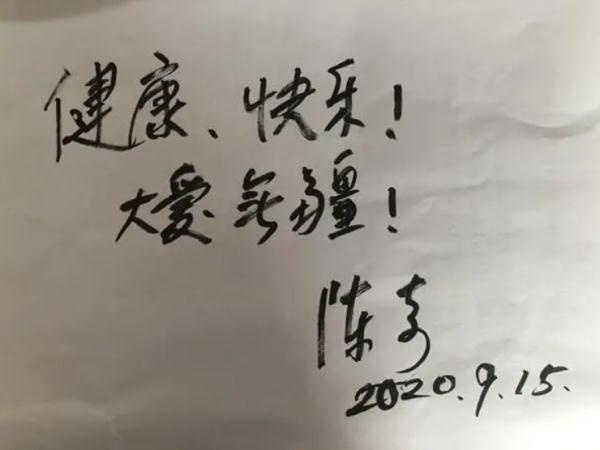 健康、快乐!
大爱無疆!
陈奇
2020.9.15.